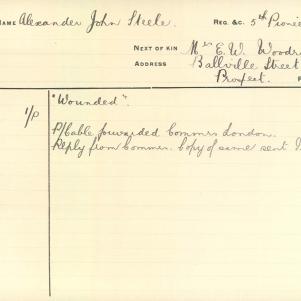 NAME Alexander John Steele. REG. &C. 5th Pionee
NEXT OF KIN Mrs E. W. Woodr
ADDRESS Ballville Street
Prospect.
1/P "Wounded".
P/Cable forwarded Commrs London.
Reply from Commrs. Copy of same sent